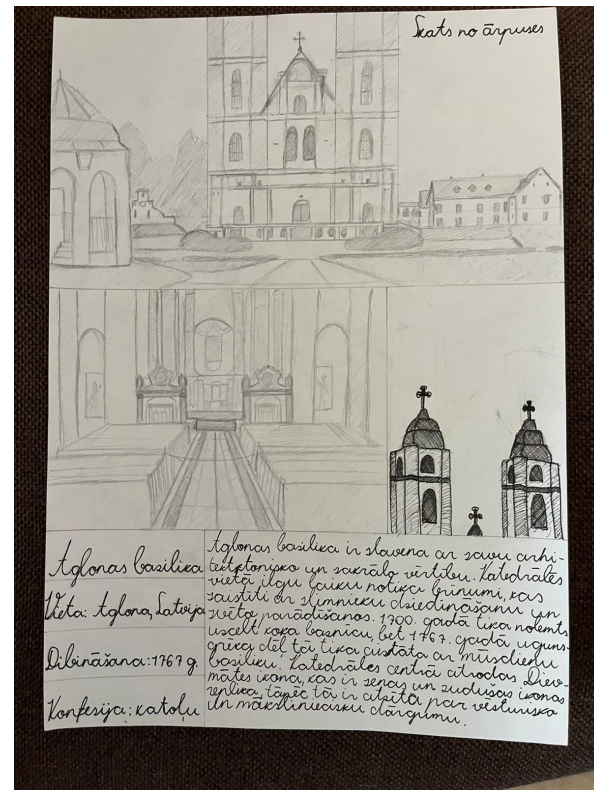 Skats no ārpuses
Aglonas bazilika
Vieta: Aglona, Latvija
Dibināšana: 1767 g.
Konfesija: katoļu
Aglonas bazilika ir slavena ar savu arhi-
tektonisko un sakrālo vērtību. Katedrāles
vietā ilgu laiku notika brīnumi, kas
saistīti ar slimnieku dziedināšanu un
svēto parādīšanos. 1700. gadā tika nolemts
uzcelt koka baznīcu, bet 1767. gadā uguns-
grēka dēļ tā tika aizstāta ar mūsdienu
baziliku. Katedrāles centrā atrodas Diev-
mātes ikona, kas ir senas un zudušas ikonas
replika, tāpēc tā ir atzīta par vēsturisko
un māksliniecisku dārgumu.